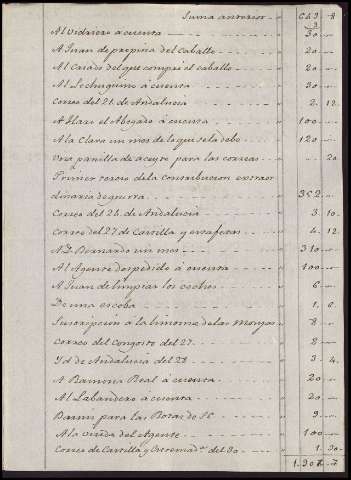 Suma anterior - " 643 " 8
Al Vidriero à cuenta - - - " 30 "
A Juan de propina del Caballo - - " 20 - "
Al Criado del que compré el caballo - - " 20 - "
Al Lechuguino à cuenta - - - " 30 - "
Correo del 21. de Andalucia - - - " 2. 12.
A Haro el Abogado à cuenta - - - " 100 - "
A la Clara un mes de la que se la debe - - " 120 - "
Una panilla de aceyte para las correas - - " " 20
Primer tercio de la Contribucion extraor
dinaria de guerra - - - " 352 - "
Correo del 24. de Andalucia - - - " 3. 10.
Correo del 27. de Castilla y estafetas - - " 4. 12.
A D. Bernardo un mes - - - " 310 - "
Al Agente despedido à cuenta - - " 100 - "
A Juan de limpiar los coches - - " 6 - "
De una escoba - - - " 1. 6
Suscripcion à la limosna de las Monjas - " 8 - "
Correo del Congosto del 27 - - - " 2 - "
Yd. de Andalucia del 28 - - - " 3. 4.
A Ramona Real à cuenta - - - " 20 - "
Al Labandero à cuenta - - - " 20 - "
Barniz para las Botas de - - - " 9 - "
A la viuda del Agente - - - " 100 - "
Correo de Castilla y Extremad.ª del 30 - - " 1. 30.
1.907. 7.